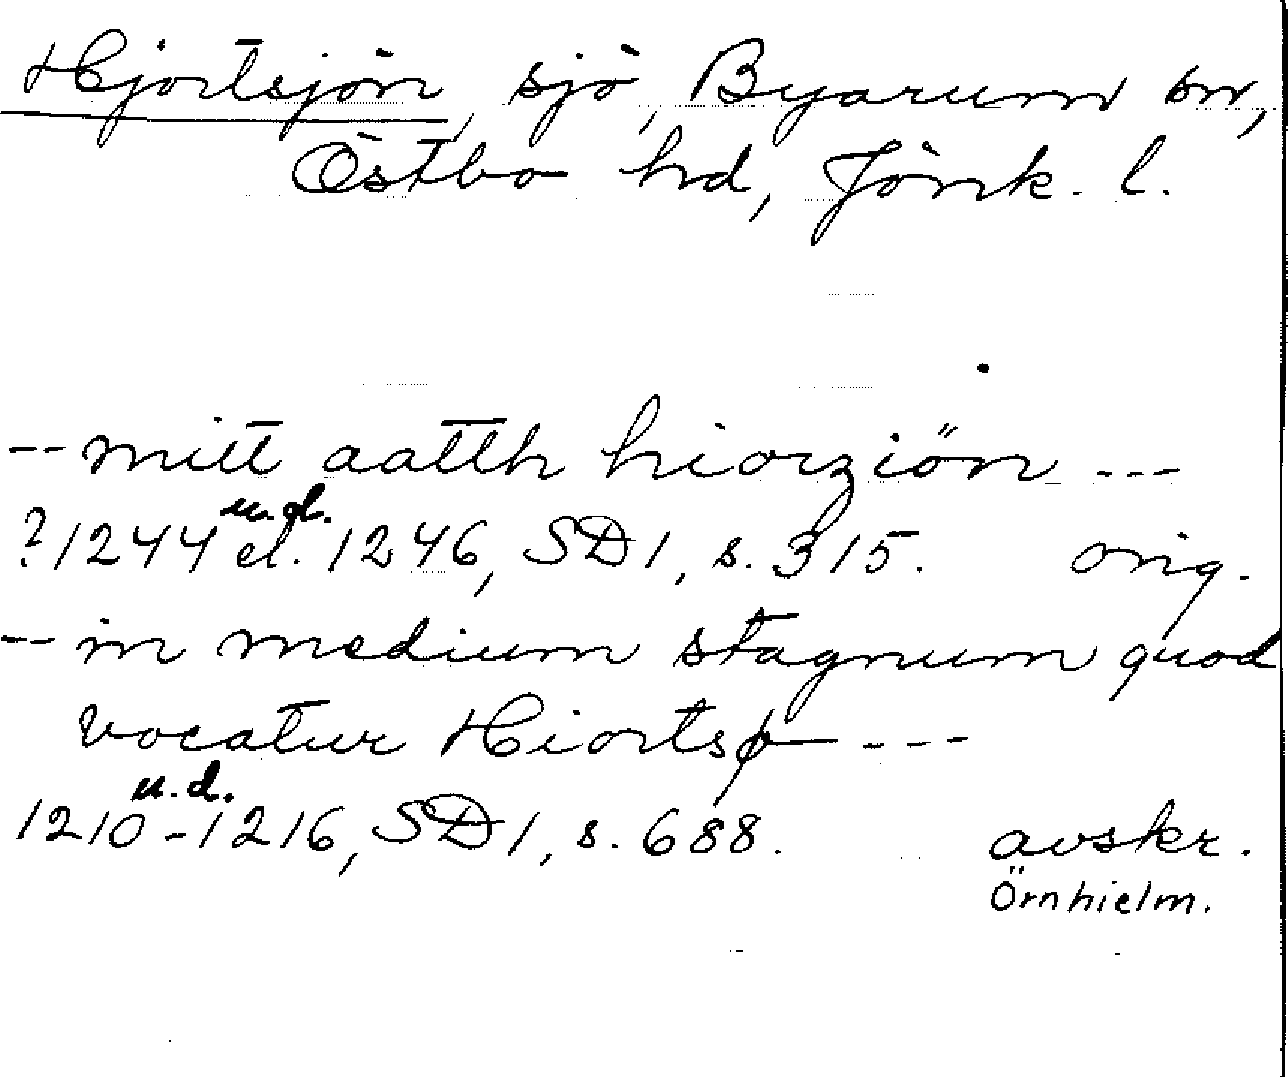 Hjortsjön, sjö, Byarum sn,
Östbo hd, Jönk. l.
-- mitt aatth hiorziön ---
u.d.
? 1244 el. 1246, SD 1, s. 315. orig.
-- in medium stagnum quod
vocatur Hiortsø ---
u.d.
1210-1216, SD 1, s. 688. avskr.
Örnhielm.